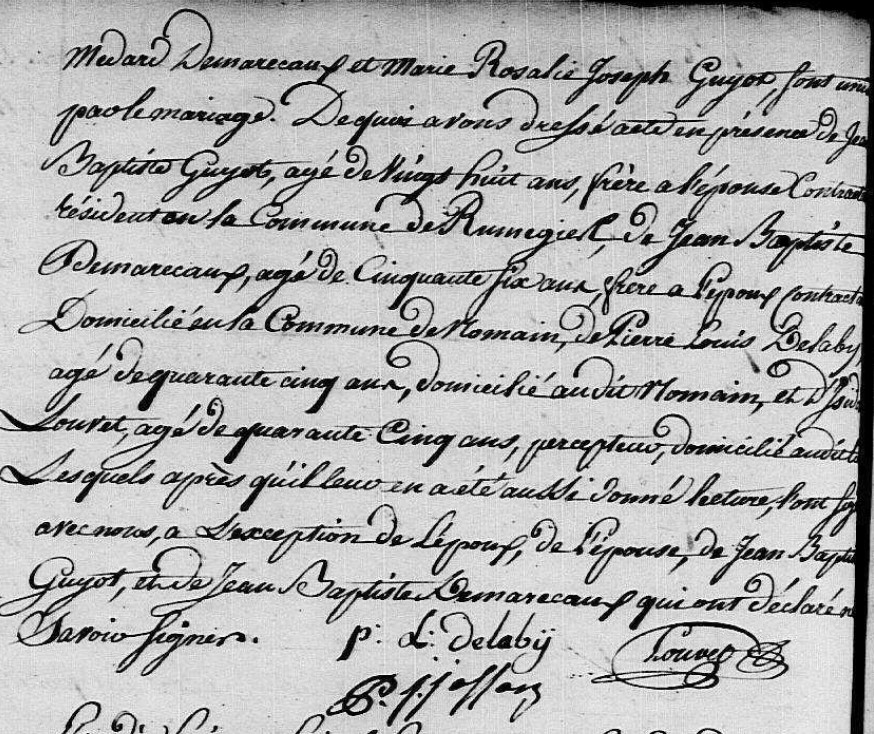 Medard Demarecaux et Marie Rosalie Joseph Guyot, sont unis
par le mariage. De quoi avons dressé acte en présence de Jean
Baptiste Guyot, agé de vingt huit ans, frère a l'épouse Contract
résident en la Commune de Rumegies, de Jean Baptiste
Demarecaux, agé de Cinquante six ans, frère a l'époux contracta
Domicilié en la Commune de Nomain, de Pierre Louis Delaby,
agé de quarante cinq ans, domicilié au dit Nomain, et d'Isid
Louvet, agé de quarante Cinq ans, percepteur, domicilié au dit
Lesquels après qu'il leur en a été aussi donné lecture, l'ont sig
avec nous, a L'exception de L'époux, de l'épouse, de Jean Bapti
Guyot, et de Jean Baptiste Demarecaux qui ont déclaré n
Savoir signer.
p. L. delabÿ
Louvet